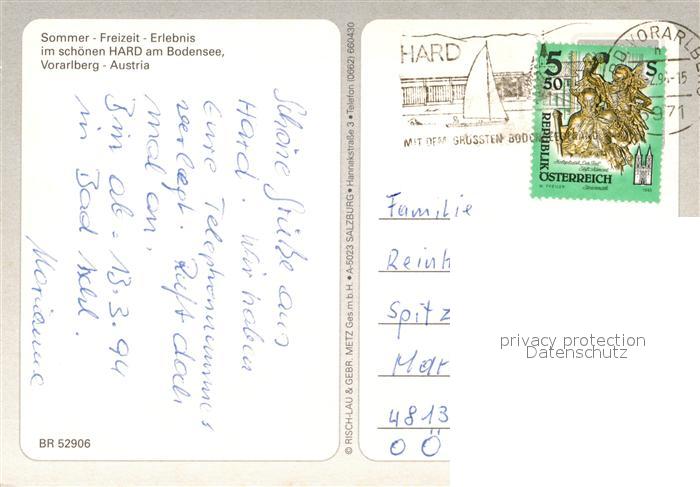 Sommer - Freizeit - Erlebnis
im schönen HARD am Bodensee,
Vorarlberg - Austria
Schöne Grüße aus
Hard. Wir haben
Eure Telephonnummer
verlegt. Ruft doch
mal an,
Bin ab - 13.3.94
in Bad Ischl.
Marianne
BR 52906
© RISCH-LAU & GEBR. METZ Ges.m.b.H. • A-5023 SALZBURG • Hannakstraße 3 • Telefon (0662) 660430
HARD
MIT DEM GRÖSSTEN
VORARLBE
6971
5 50 S
REPUBLIK
ÖSTERREICH
Steiermark
1993
Familie
Reinh
Spitz
Mar
4813
OÖ
privacy protection
Datenschutz